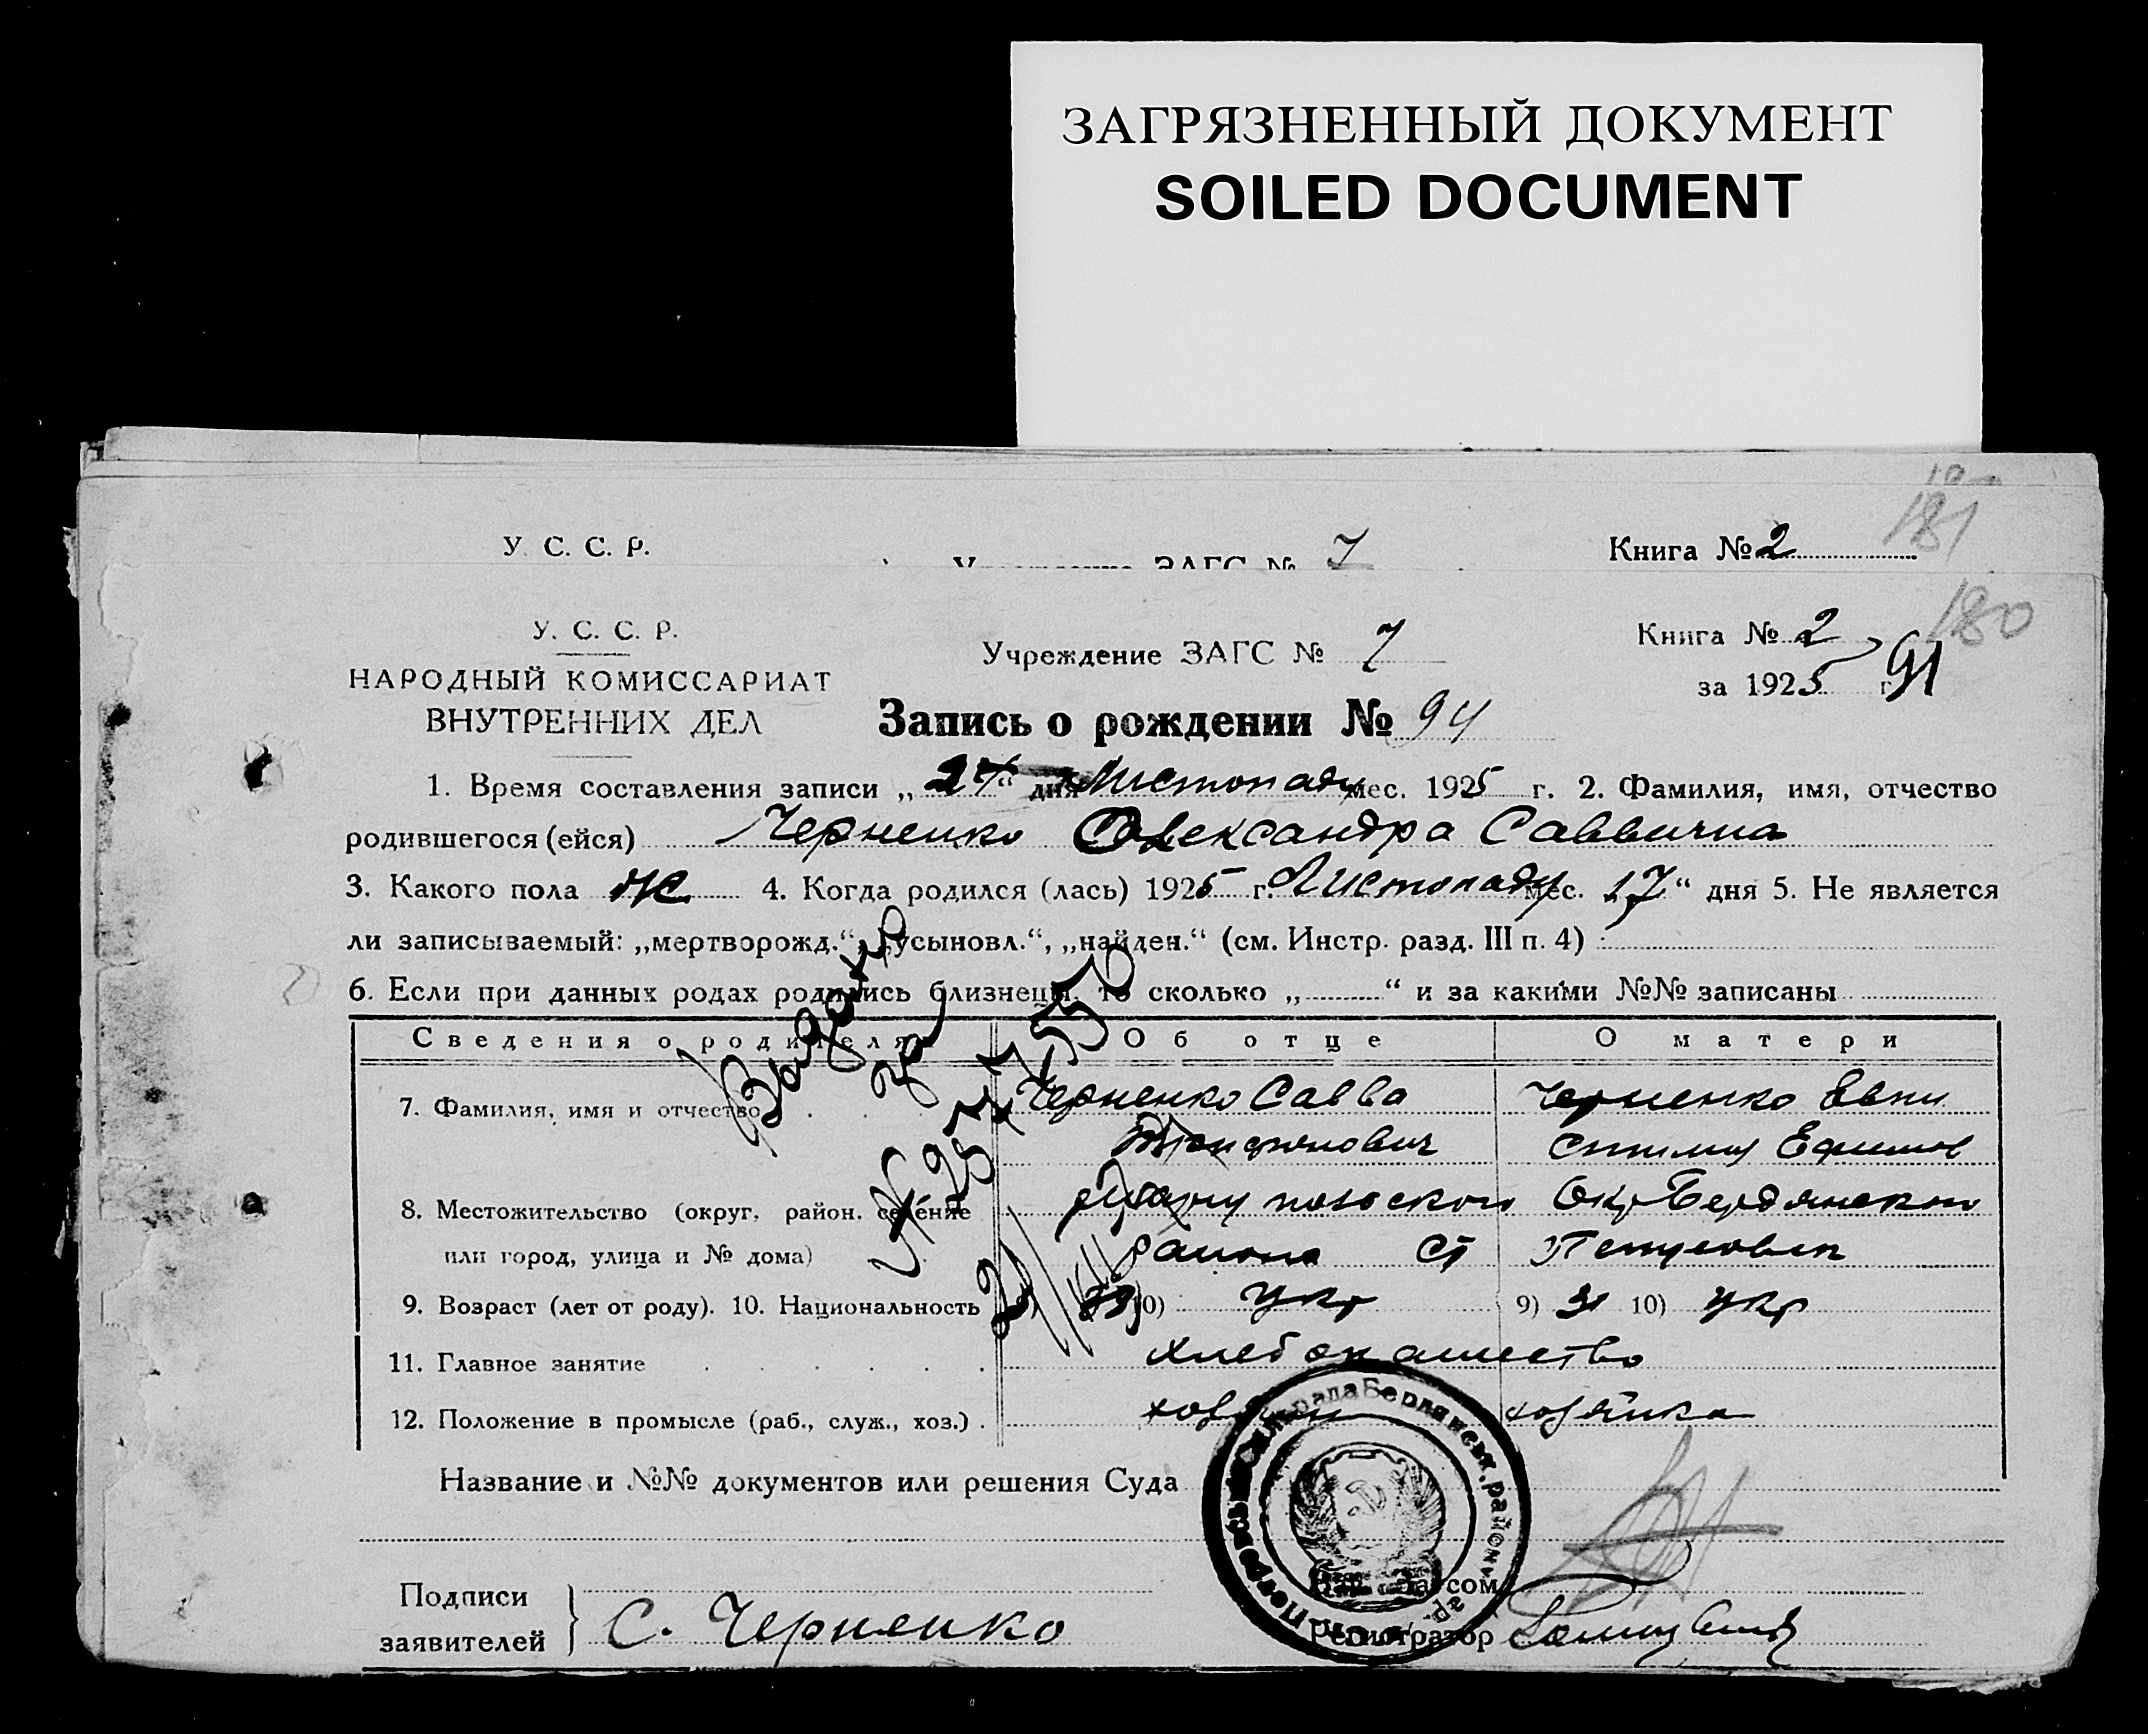 ЗАГРЯЗНЕННЫЙ ДОКУМЕНТ
SOILED DOCUMENT
181
У. С. С. Р. 7 Книга № 2
180
У. С. С. Р. Учреждение ЗАГС № 7 Книга № 2
НАРОДНЫЙ КОМИССАРИАТ за 1925 г. 91
ВНУТРЕННИХ ДЕЛ Запись о рождении № 94
1. Время составления записи „24“ дня Листопаду мес. 1925 г. 2. Фамилия, имя, отчество
родившегося (ейся) Черненко Олександра Саввична
3. Какого пола ж 4. Когда родился (лась) 1925 г. Листопаду мес. 17 “ дня 5. Не является
ли записываемый: „мертворожд.“, „усыновл.“, „найден.“ (см. Инстр. разд. III п. 4) :
6. Если при данных родах родились близнецы, то сколько „ “ и за какими №№ записаны
Сведения о родителях Об отце О матери
7. Фамилия, имя и отчество Черненко Савва Черненко Евпи
8. Местожительство (округ, район, селение Окр Бердянского
или город, улица и № дома) района
9. Возраст (лет от роду). 10. Национальность 10) укр 9) 31 10) укр
11. Главное занятие хлебопашество
12. Положение в промысле (раб., служ., хоз.) хозяйка
Название и №№ документов или решения Суда
Подписи
заявителей С. Черненко Регистратор